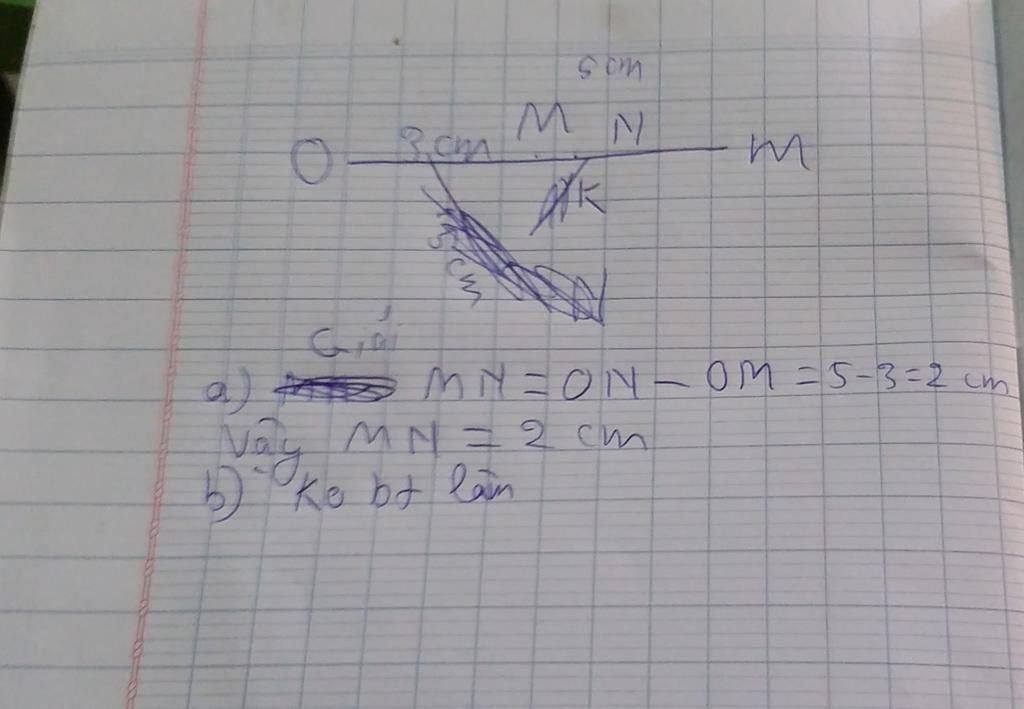 5 cm
O 3 cm M N m
K
5 cm
Giải
a) MN = ON - OM = 5-3=2 cm
Vậy MN = 2 cm
b) Ko bt làm